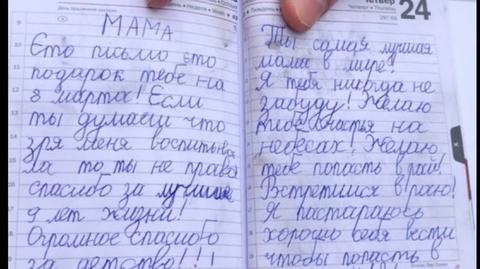 МАМА
Єто письмо єто
подарок тебе на
8 марта! Если
ты думаеш что
зря меня воспитыва
ла то ты не права
спасибо за лучшие
9 лет жизни!
Огромное спасибо
за детство!!!
24
Ты самая лучшая
мама в мире!
Я тебя никогда не
забуду! Желаю
тебе счастья на
небесах! Желаю
тебе попасть в рай!
Встретимся в раю!
Я постараюсь
хорошо себя вести
чтобы попасть в